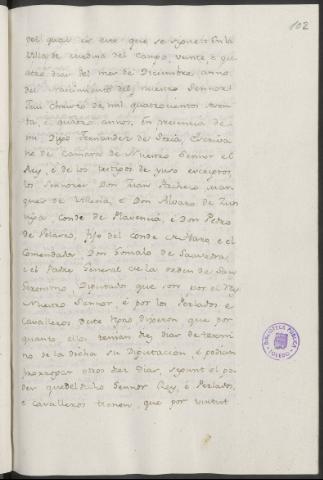 102
del qual es este que se sigue: En la
Villa de medina del Campo, veinte e qu
atro dias del mes de Diciembre, anno
del nascimiento del nuestro Sennor
Jesu Christo de mil quatrocientos
ta, e quatro annos, en presencia de
mi Diego Fernandez de Escriva
no de Camara de Nuestro Sennor el
Rey, é de los testigos de yuso escriptos,
los Sennores Don Juan Pacheco mar
ques de Villena, e Don Alvaro de Zun
niga, Conde de Plasencia, e Don Pedro
de Velasco, fijo del conde de Haro, e el
Comendador Don Gonzalo de Saavedra,
e el Padre General de la Orden de San
Geronimo, Diputados que son por el Rey
Nuestro Sennor, é por los Perlados, e
Cavalleros deste Reyno, dijeron que por
quanto ellos tenian diez dias de termi
no de la dicha su Diputacion, é podian
prorrogar otros diez dias, segunt el po
der quel dicho Sennor Rey, é Perlados,
e Cavalleros tienen, que por virtut
BIBLIOTECA PUBLICA
TOLEDO